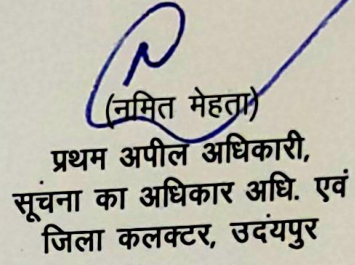 (नमित मेहता)
प्रथम अपील अधिकारी,
सूचना का अधिकार अधि. एवं
जिला कलक्टर, उदयपुर